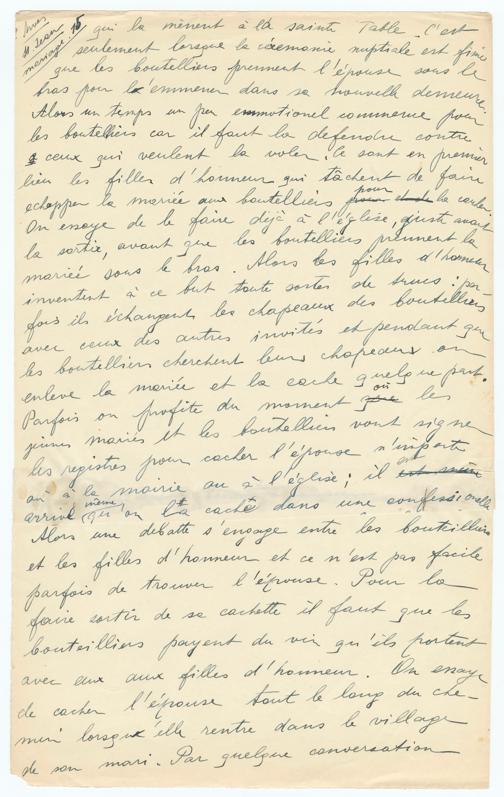 St. Jean
mariage. 15
qui la mènent à la sainte Table. C'est
seulement lorsque la cérémonie nuptiale est finie
que les boutelliers prennent l'épouse sous le
bras pour l'emmener dans sa nouvelle demeure.
Alors un temps un peu emmotionel commence pour
les boutelliers car il faut la defendre contre
ceux qui veulent la voler. Ce sont en premier
lieu les filles d'honneur qui tâchent de faire
echapper la mariée aux boutelliers pour la cacher.
On essaye de le faire déjà à l'église, juste avant
la sortie, avant que les boutelliers prennent la
mariée sous le bras. Alors les filles d'honneur
inventent à ce but toute sortes de trucs: par-
fois ils échangent les chapeaux des boutelliers
avec ceux des autres invités et pendant que
les boutelliers cherchent leurs chapeaux on
enlève la mariée et la cache quelque part.
Parfois on profite du moment où les
jeunes mariés et les boutelliers vont signer
les registres pour cacher l'épouse n'importe
où à la mairie ou à l'église; il
arrive même qu'on l'a caché dans une confessionelle
Alors une debatte s'engage entre les boutelliers
et les filles d'honneur et ce n'est pas facile
parfois de trouver l'épouse. Pour la
faire sortir de sa cachette il faut que les
bouteilliers payent du vin qu'ils portent
avec eux aux filles d'honneur. On essaye
de cacher l'épouse tout le long du che-
min lorsqu'elle rentre dans le village
de son mari. Par quelque conversation